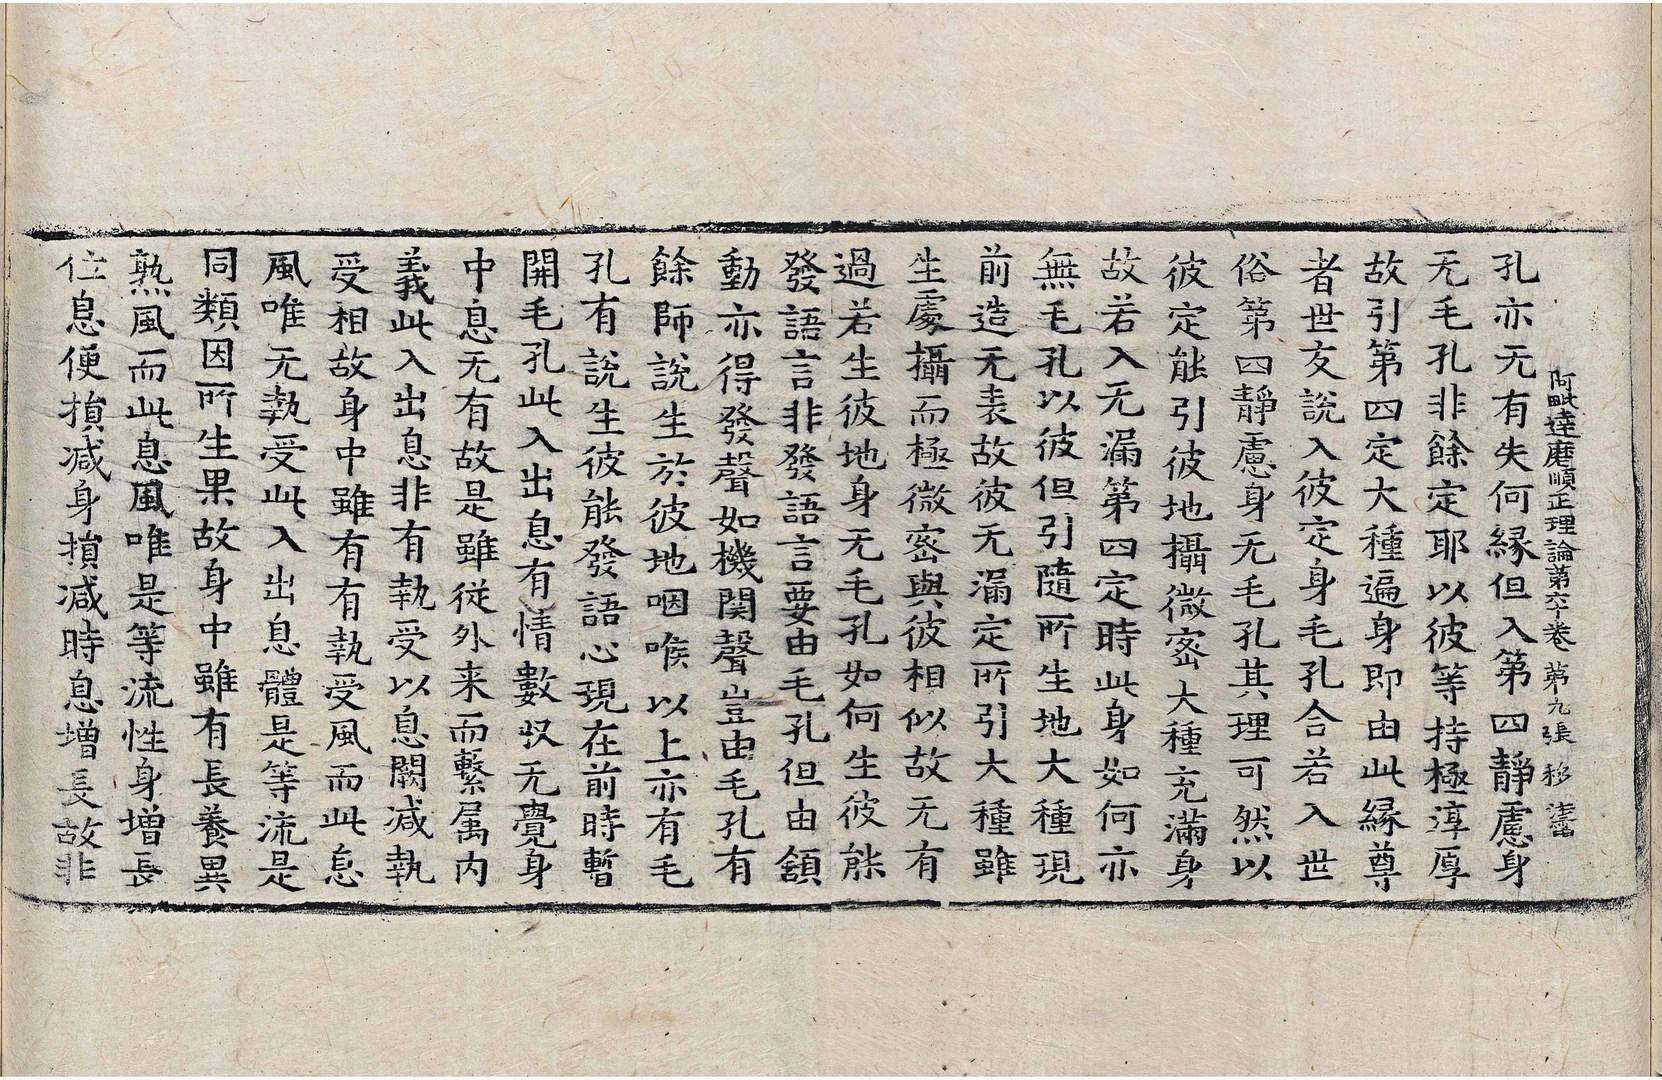 阿毗達磨順正理論第六十卷 第九張 移
孔亦无有失何緣但入第四靜慮身
无毛孔非餘定耶以彼等持極淳厚
故引第四定大種遍身即由此緣尊
者世友說入彼定身毛孔合若入世
俗第四靜慮身无毛孔其理可然以
彼定能引彼地攝微密大種充滿身
故若入无漏第四定時此身如何亦
無毛孔以彼但引隨所生地大種現
前造无表故彼无漏定所引大種雖
生處攝而極微密與彼相似故无有
過若生彼地身无毛孔如何生彼能
發語言非發語言要由毛孔但由頷
動亦得發聲如機関聲豈由毛孔有
餘師說生於彼地咽喉以上亦有毛
孔有說生彼能發語心現在前時暫
開毛孔此入出息有情數収无覺身
中息无有故是雖從外来而繫属内
義此入出息非有執受以息闕減執
受相故身中雖有有執受風而此息
風唯无執受此入出息體是等流是
同類因所生果故身中雖有長養異
熟風而此息風唯是等流性身增長
位息便損减身損减時息增長故非